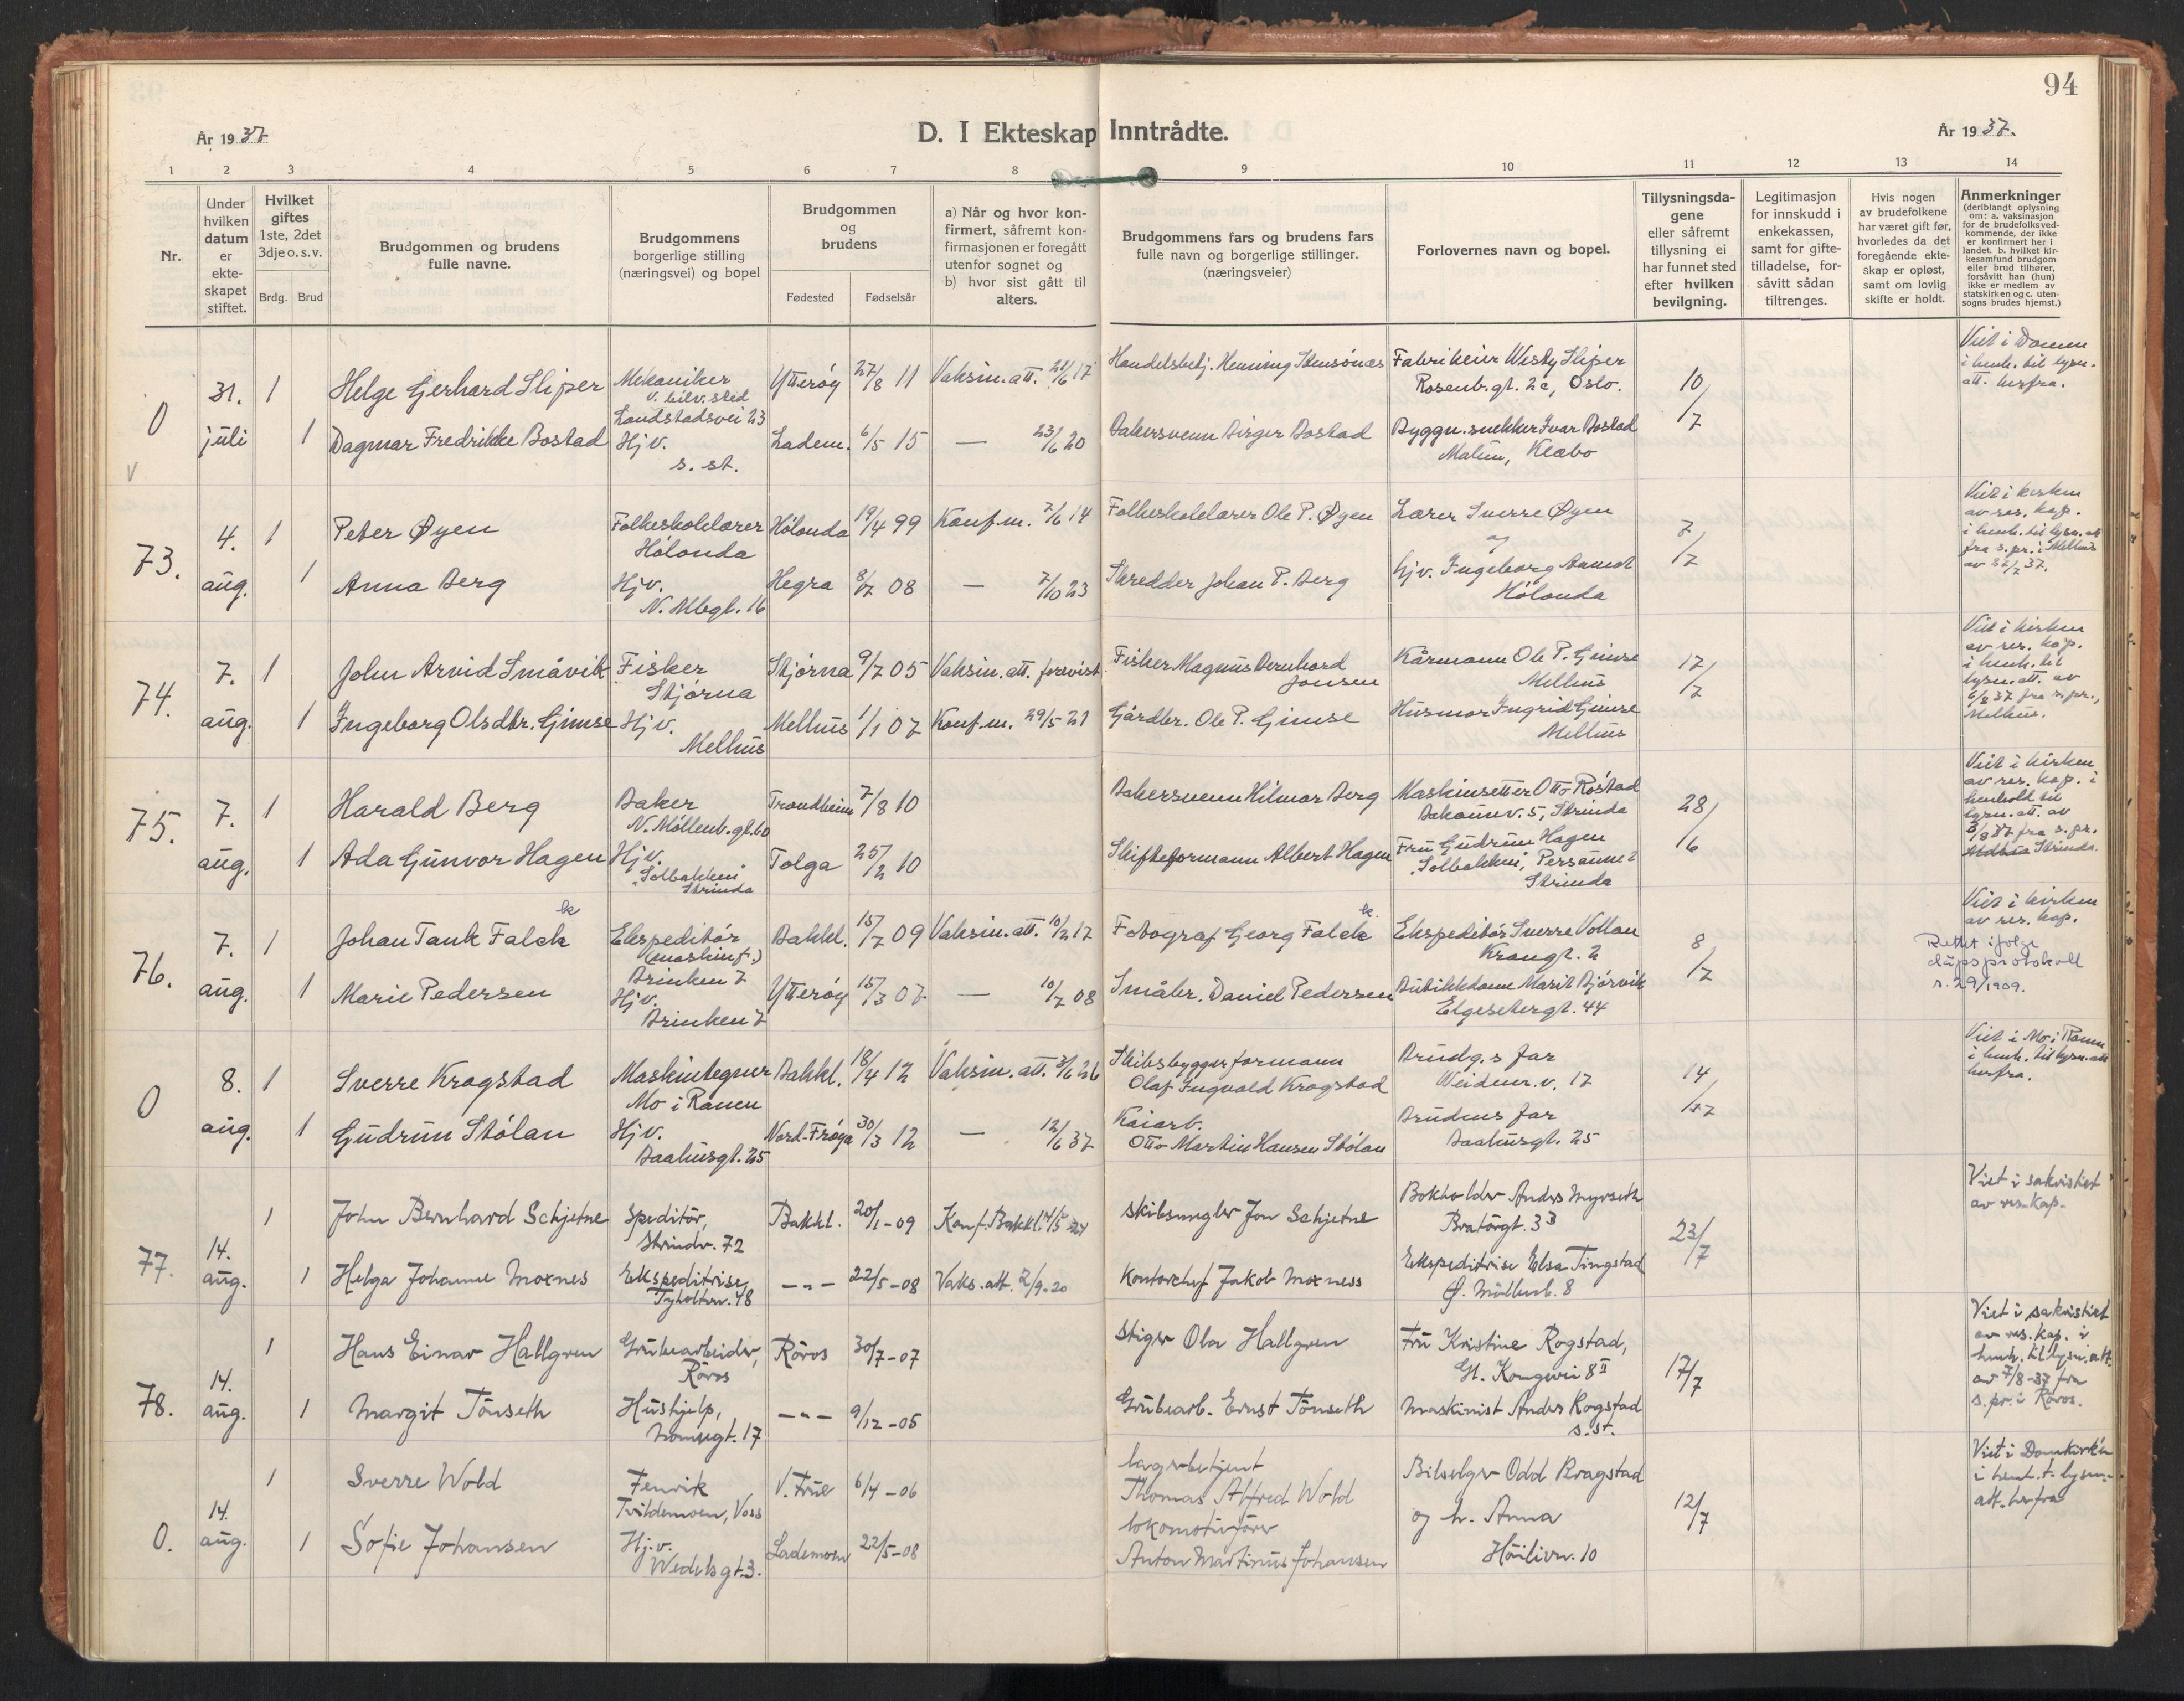 94
År 1937.
D. I Ekteskap Inntrådte.
År 1937.
1 2 3 4 5 6 7 8 9 10 11 12 13 14
Nr.
Under hvilken datum er ekte-skapet stiftet.
Hvilket giftes 1ste, 2det 3dje o. s. v.
Brdg. Brud
Brudgommen og brudens fulle navne.
Brudgommens borgerlige stilling (næringsvei) og bopel
Brudgommen og brudens
Fødested Fødselsår
a) Når og hvor kon-firmert, såfremt kon-firmasjonen er foregått utenfor sognet og b) hvor sist gått til alters.
Brudgommens fars og brudens fars fulle navn og borgerlige stillinger. (næringsveier)
Forlovernes navn og bopel.
Tillysningsda-gene eller såfremt tillysning ei har funnet sted efter hvilken bevilgning.
Legitimasjon for innskudd i enkekassen, samt for gifte-tilladelse, for-såvitt sådan tiltrenges.
Hvis nogen av brudefolkene har været gift før, hvorledes da det foregående ekte-skap er opløst, samt om lovlig skifte er holdt.
Anmerkninger (deriblandt oplysning om: a. vaksinasjon for de brudefolks ved-kommende, der ikke er konfirmert her i landet. b. hvilket kir-kesamfund brudgom eller brud tilhører, forsåvitt han (hun) ikke er medlem av statskirken og c. uten-sogns brudes hjemst.)
0 31. juli 1 Helge Gerhard Sliper Mekaniker v. bilv.sted Landstadsvei 23 Ytterøy 27/8 11 Vaksin. att. 24/6 17 Handelsbetj. Henning Stensönes Fabrikeier Wesky Sliper Rosenb.gt. 2c, Oslo. 10/7 Viet i Domen i henh. til lysn. att. herfra.
1 Dagmar Fredrikke Bostad Hjv. s. st. Ladem. 6/5 15 — 23/6 20 Bakersvenn Birger Bostad Byggn.snekker Ivar Bostad Malum, Klæbo
73. 4. aug. 1 Peter Øyen Folkeskolelærer Hölonda Hölonda 19/4 99 Konf. m. 7/6 14 Folkeskolelærer Ole P. Øyen Lærer Sverre Øyen og 7/7 Viet i kirken av res. kap. i henh. til lysn. att. fra s.pr. i Melhus av 22/7 37.
1 Anna Berg Hjv. N. Mbgt. 16 Hegra 8/7 08 — 7/10 23 Skredder Johan P. Berg hjv. Ingeborg Aamot Hölonda
74. 7. aug. 1 John Arvid Småvik Fisker Stjörna Stjörna 9/7 05 Vaksin. att. forevist Fisker Magnus Bernhard Jonsen Kårmann Ole P. Gimse Melhus 17/7 Viet i kirken av res. kap. i henh. til lysn. att. av 6/8 37 fra s.pr., Melhus.
1 Ingeborg Olsdtr. Gimse Hjv. Melhus Melhus 1/1 07 Konf. m. 29/5 21 Gårdbr. Ole P. Gimse Husmor Ingrid Gimse Melhus
75. 7. aug. 1 Harald Berg Baker N. Möllenb.gt. 60 Trondheim 7/8 10 Bakersvenn Hilmar Berg Maskinsetter Otto Röstad Bakaunev. 5, Strinda 28/16 Viet i kirken av res. kap. i henhold til lysn. att. av 3/8 37 fra s. pr. Strinda.
1 Ada Gunvor Hagen Hjv. "Solbakken" Strinda Tolga 25/2 10 Skifteformann Albert Hagen Fru Gudrun Hagen "Solbakken", Strinda
76. 7. aug. 1 Johan Tank Falck k Ekspeditör (maskinf.) Brinken 7 Bakkl. 15/7 09 Vaksin. att. 10/2 17 Fotograf Georg Falck k. Ekspeditör Sverre Vollan Krongt. 2 8/7 Viet i kirken av res. kap.
Rettet ifølge dåpsprotokoll s. 29/1909.
1 Marie Pedersen Hjv. Brinken 7 Ytterøy 15/3 07 — 10/7 08 Småbr. Daniel Pedersen Butikkdame Marit Bjørvik Elgesetergt. 44
0 8. aug. 1 Sverre Krogstad Maskintegner Mo i Ranen Bakkl. 18/4 12 Vaksin. att. 3/6 26 Skibsbyggerformann Olaf Ingvald Krogstad Brudg.s far Weidem. v. 17 14/7 Viet i Mo i Ranen i henh. til lysn. att. herfra.
1 Gudrun Stölan Hjv. Baahusgt. 25 Nord-Fröya 30/3 12 — 12/6 37 Kaiarb. Otto Martin Hansen Stölan Brudens far Baahusgt. 25
77. 14. aug. 1 John Bernhard Schjetne Speditör, Strindv. 72 Bakkl. 20/1-09 Konf. Bakkl. 4/5-24 Skibsmegler Jon Schjetne Bokholder Anders Myrseth Bratörgt. 33 23/7 Viet i sakristiet av res.kap.
1 Helga Johanne Moxnes Ekspeditrise, Tyholtv. 48 —"— 22/5-08 Vaks. att. 2/9-20 Kontorchef Jakob Moxness Ekspeditrise Elsa Tingstad Ø. Möllenb. 8
78. 14. aug. 1 Hans Einar Hallgren Grubearbeider, Röros Röros 30/7-07 Stiger Ola Hallgren Fru Kristine Rogstad, Gl. Kongevei 8 II 17/7 Viet i sakristiet av res. kap. i henh. til lysn. att. av 7/8-37 fra s. pr. i Röros.
1 Margit Tönseth Hushjelp, Nonnegt. 17 —"— 9/12-05 Grubearb. Ernst Tönseth Maskinist Anders Rogstad s.st.
0. 14. aug. 1 Sverre Wold Fenrik Tvildemoen, Voss V. Frue 6/4-06 Lagerbetjent Thomas Alfred Wold Bilselger Odd Bragstad 12/7 Viet i Domkirken i henh. t. lysn.-att. herfra
1 Sofie Johansen Hj.v. Wedelsgt. 3. Lademoen 22/5-08 Lokomotivförer Anton Martinus Johansen og h. Anna Höiliv. 10